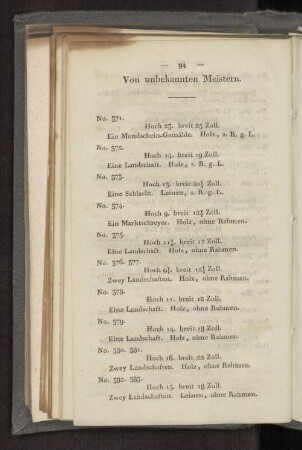 — 94 —
Von unbekannten Meistern.
No. 371.
Hoch 23. breit 25 Zoll.
Ein Mondschein-Gemälde. Holz, s. R. g. L.
No. 372.
Hoch 15. breit 19 Zoll.
Eine Landschaft. Holz, s. R. g. L.
No. 373.
Hoch 13. breit 20¾ Zoll.
Eine Schlacht. Leinen, s. R. g. L.
No. 374.
Hoch 9. breit 12¾ Zoll.
Ein Marktschreyer. Holz, ohne Rahmen.
No. 375.
Hoch 11¾ breit 17 Zoll.
Eine Landschaft. Holz, ohne Rahmen.
No. 376. 377.
Hoch 9¾ breit Zoll.
Zwey Landschaften. Holz, ohne Rahmen.
No. 378.
Hoch 11. breit 12 Zoll.
Eine Landschaft. Holz, ohne Rahmen.
No. 379.
Hoch 14. breit 18 Zoll.
Eine Landschaft. Holz, ohne Rahmen.
No. 380. 381.
Hoch 16. breit 22 Zoll.
Zwey Landschaften. Holz, ohne Rahmen.
No. 382. 383.
Hoch 15. breit 18 Zoll.
Zwey Landschaften. Leinen, ohne Rahmen.